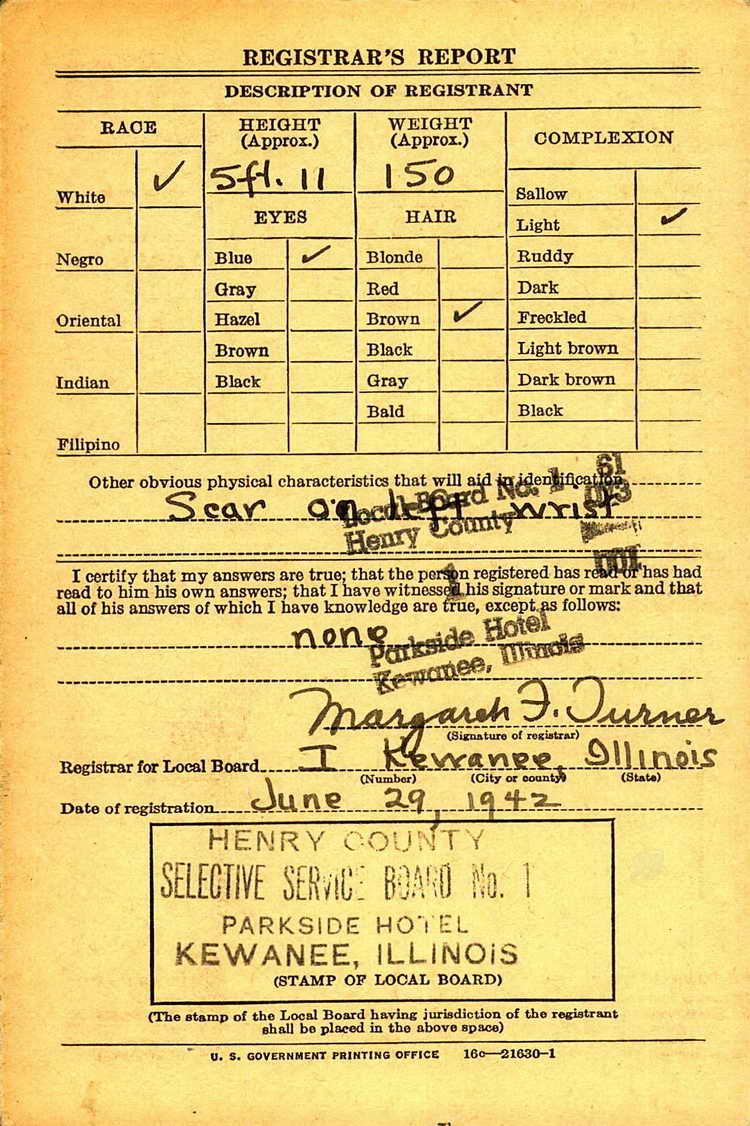 REGISTRAR'S REPORT
DESCRIPTION OF REGISTRANT
RACE
HEIGHT
(Approx.)
WEIGHT
(Approx.)
COMPLEXION
White ✓
5ft. 11
150
Sallow
EYES
HAIR
Light ✓
Negro
Blue ✓
Blonde
Ruddy
Gray
Red
Dark
Oriental
Hazel
Brown ✓
Freckled
Brown
Black
Light brown
Indian
Black
Gray
Dark brown
Bald
Black
Filipino
Other obvious physical characteristics that will aid in identification
Scar on left wrist
Local Board No. 1 61
Henry County 073
001
1
Parkside Hotel
Kewanee, Illinois
I certify that my answers are true; that the person registered has read or has had
read to him his own answers; that I have witnessed his signature or mark and that
all of his answers of which I have knowledge are true, except as follows:
none
Margaret F. Turner
(Signature of registrar)
Registrar for Local Board I Kewanee, Illinois
(Number) (City or county) (State)
Date of registration June 29, 1942
HENRY COUNTY
SELECTIVE SERVICE BOARD No. 1
PARKSIDE HOTEL
KEWANEE, ILLINOIS
(STAMP OF LOCAL BOARD)
(The stamp of the Local Board having jurisdiction of the registrant
shall be placed in the above space)
U. S. GOVERNMENT PRINTING OFFICE 16c—21630-1